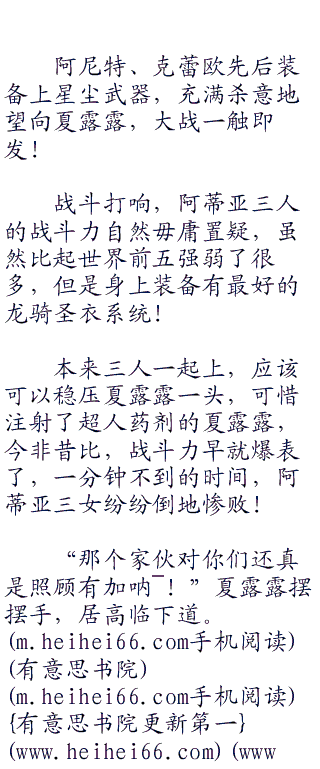 阿尼特、克蕾欧先后装
备上星尘武器，充满杀意地
望向夏露露，大战一触即
发！
战斗打响，阿蒂亚三人
的战斗力自然毋庸置疑，虽
然比起世界前五强弱了很
多，但是身上装备有最好的
龙骑圣衣系统！
本来三人一起上，应该
可以稳压夏露露一头，可惜
注射了超人药剂的夏露露，
今非昔比，战斗力早就爆表
了，一分钟不到的时间，阿
蒂亚三女纷纷倒地惨败！
“那个家伙对你们还真
是照顾有加呐ˉ！”夏露露摆
摆手，居高临下道。
(m.heihei66.com手机阅读)
(有意思书院)
(m.heihei66.com手机阅读)
{有意思书院更新第一}
(www.heihei66.com)(www